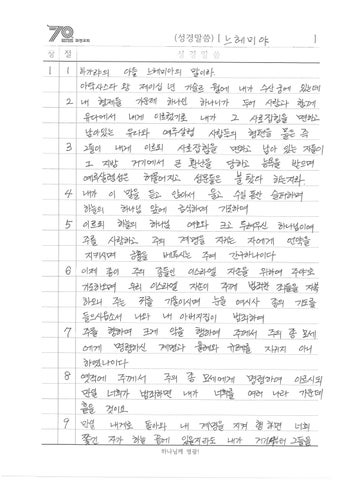 70 화평교회 (성경말씀) [ 느헤미야 ]
장 절 성경말씀
1 1 하가랴의 아들 느헤미야의 말이라
아닥사스다 왕 제이십 년 기슬르 월에 내가 수산궁에 있는데
2 내 형제들 가운데 하나인 하나니가 두어 사람과 함께
유다에서 내게 이르렀기로 내가 그 사로잡힘을 면하고
남아있는 유다와 예루살렘 사람들의 형편을 물은즉
3 그들이 내게 이르되 사로잡힘을 면하고 남아 있는 자들이
그 지방 거기에서 큰 환난을 당하고 능욕을 받으며
예루살렘성은 허물어지고 성문들은 불탔다 하는지라
4 내가 이 말을 듣고 앉아서 울고 수일 동안 슬퍼하며
하늘의 하나님 앞에 금식하며 기도하여
5 이르되 하늘의 하나님 여호와 크고 두려우신 하나님이여
주를 사랑하고 주의 계명을 지키는 자에게 언약을
지키시며 긍휼을 베푸시는 주여 간구하나이다
6 이제 종이 주의 종들인 이스라엘 자손을 위하여 주야로
기도하오며 우리 이스라엘 자손이 주께 범죄한 죄들을 자복
하오니 주는 귀를 기울이시며 눈을 여시사 종의 기도를
들으시옵소서 나와 내 아버지집이 범죄하여
7 주를 향하여 크게 악을 행하여 주께서 주의 종 모세
에게 명령하신 계명과 율례와 규례를 지키지 아니
하였나이다
8 옛적에 주께서 주의 종 모세에게 명령하여 이르시되
만일 너희가 범죄하면 내가 너희를 여러 나라 가운데
흩을 것이요
9 만일 내게로 돌아와 내 계명을 지켜 행하면 너희
쫓긴 자가 하늘 끝에 있을지라도 내가 거기서부터 그들을
하나님께 영광!